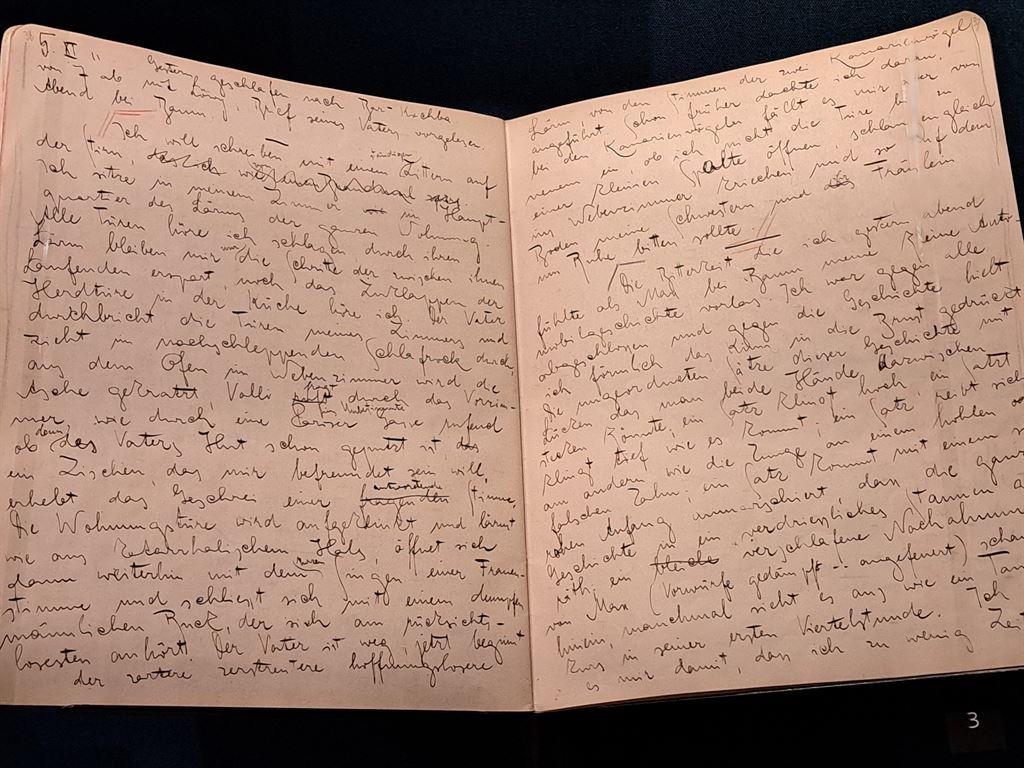 5. XI 11 Gestern geschlafen nach Bar-Kochba
von 7 ab mit Löwy, Brief seines Vaters vorgelesen.
Abend bei Baum.
Ich will schreiben mit einem ständigen Zittern auf
der Stirn,
Ich sitze in meinem Zimmer im Haupt-
quartier des Lärms der ganzen Wohnung.
Alle Türen höre ich schlagen durch ihren
Lärm bleiben mir nur die Schritte der zwischen ihnen
Laufenden erspart, noch das Zuklappen der
Herdtüre in der Küche höre ich. Der Vater
durchbricht die Türen meines Zimmers und
zieht im nachschleppenden Schlafrock durch
aus dem Ofen im Nebenzimmer wird die
Asche gekratzt, Valli fragt durch das Vorzim-
mer wie durch eine Pariser Gasse rufend
ob denn des Vaters Hut schon geputzt ist
ein Zischen, das mir befreundet sein will,
erhebt das Geschrei einer antwortenden Stimme.
Die Wohnungstüre wird aufgeklinkt und lärmt
wie aus katarrhalischem Hals, öffnet sich
dann weiterhin mit dem Singen einer Frauen-
stimme und schliesst sich mit einem dumpfen
männlichen Ruck, der sich am rücksichts-
losesten anhört. Der Vater ist weg, jetzt beginnt
der zartere zerstreutere hoffnungslosere
Lärm, von den Stimmen der zwei Kanarienvögel
angeführt. Schon früher dachte ich daran,
bei den Kanarienvögeln fällt es mir aber von
neuem ein, ob ich nicht die Türe bis zu
einer kleinen Spalte öffnen, schlangengleich
ins Nebenzimmer kriechen und so auf dem
Boden meine Schwestern und ihr Fräulein
um Ruhe bitten sollte.
Die Bitterkeit die ich gestern abend
fühlte als Max bei Baum meine kleine Auto-
mobilgeschichte vorlas. Ich war gegen alle
abgeschlossen und gegen die Geschichte hielt
ich förmlich das Kinn in die Brust gedrückt.
Die ungeordneten Sätze dieser Geschichte mit
Lücken das man beide Hände dazwischen
stecken könnte; ein Satz klingt hoch, ein Satz
klingt tief wie es kommt; ein Satz reibt sich
am andern wie die Zunge an einem hohlen o
falschen Zahn; ein Satz kommt mit einem so
rohen Anfang anmarschiert, dass die ganze
Geschichte in ein verdriessliches Staunen
räth; ein verschlafene Nachahmung
von Max (Vorwürfe gedämpft – angefeuert) schau
hinein, manchmal sieht es aus wie ein Tanz
kurs in seiner ersten Viertelstunde. Ich
es mir damit, dass ich zu wenig Zeit
3